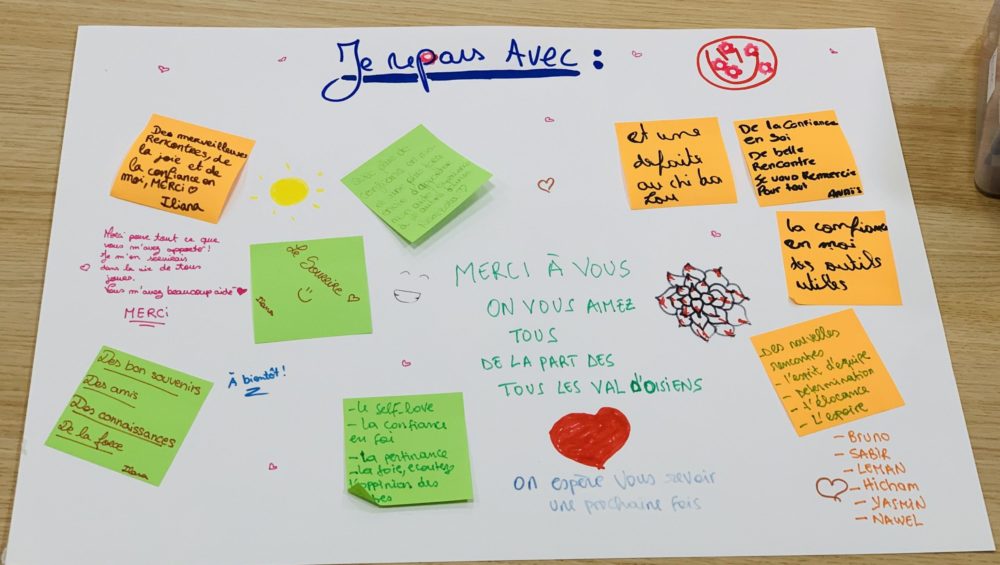 Je repars Avec :
Des merveilleuses
Rencontrees, de
la joie et de
la confiance en
moi, MERCI ♡
Iliana
et une
defaite
au chi ba
Lou
De la Confiance
en Soi
De belle
Rencontre
Je vous Remercie
Pour tout
ANAÏS
la confiance
en moi
des outils
utiles
Merci pour tout ce que
vous m'avez apporté!
Je m'en servirais
dans la vie de tous
jours.
Vous m'avez beaucoup aidé ♥
MERCi
Le Sourire
Iliana
MERCI À VOUS
ON VOUS AIMEZ
TOUS
DE LA PART DES
TOUS LES VAL D'OISIENS
Des bon souvenirs
Des amis
Des connaissances
De la force
Iliana
À bientôt!
- le self-love
- La confiance
en foi
- La pertinance
- La joie, ecoutes
l'oppinion des
Des nouvelles
rencontres
- l'esprit d'equipe
- Determination
- L'élocance
- L'espoire
On espère vous revoir
une prochaine fois
- Bruno
- SABIR
- LEMAN
- Hicham
- YASMIN
- NAWEL